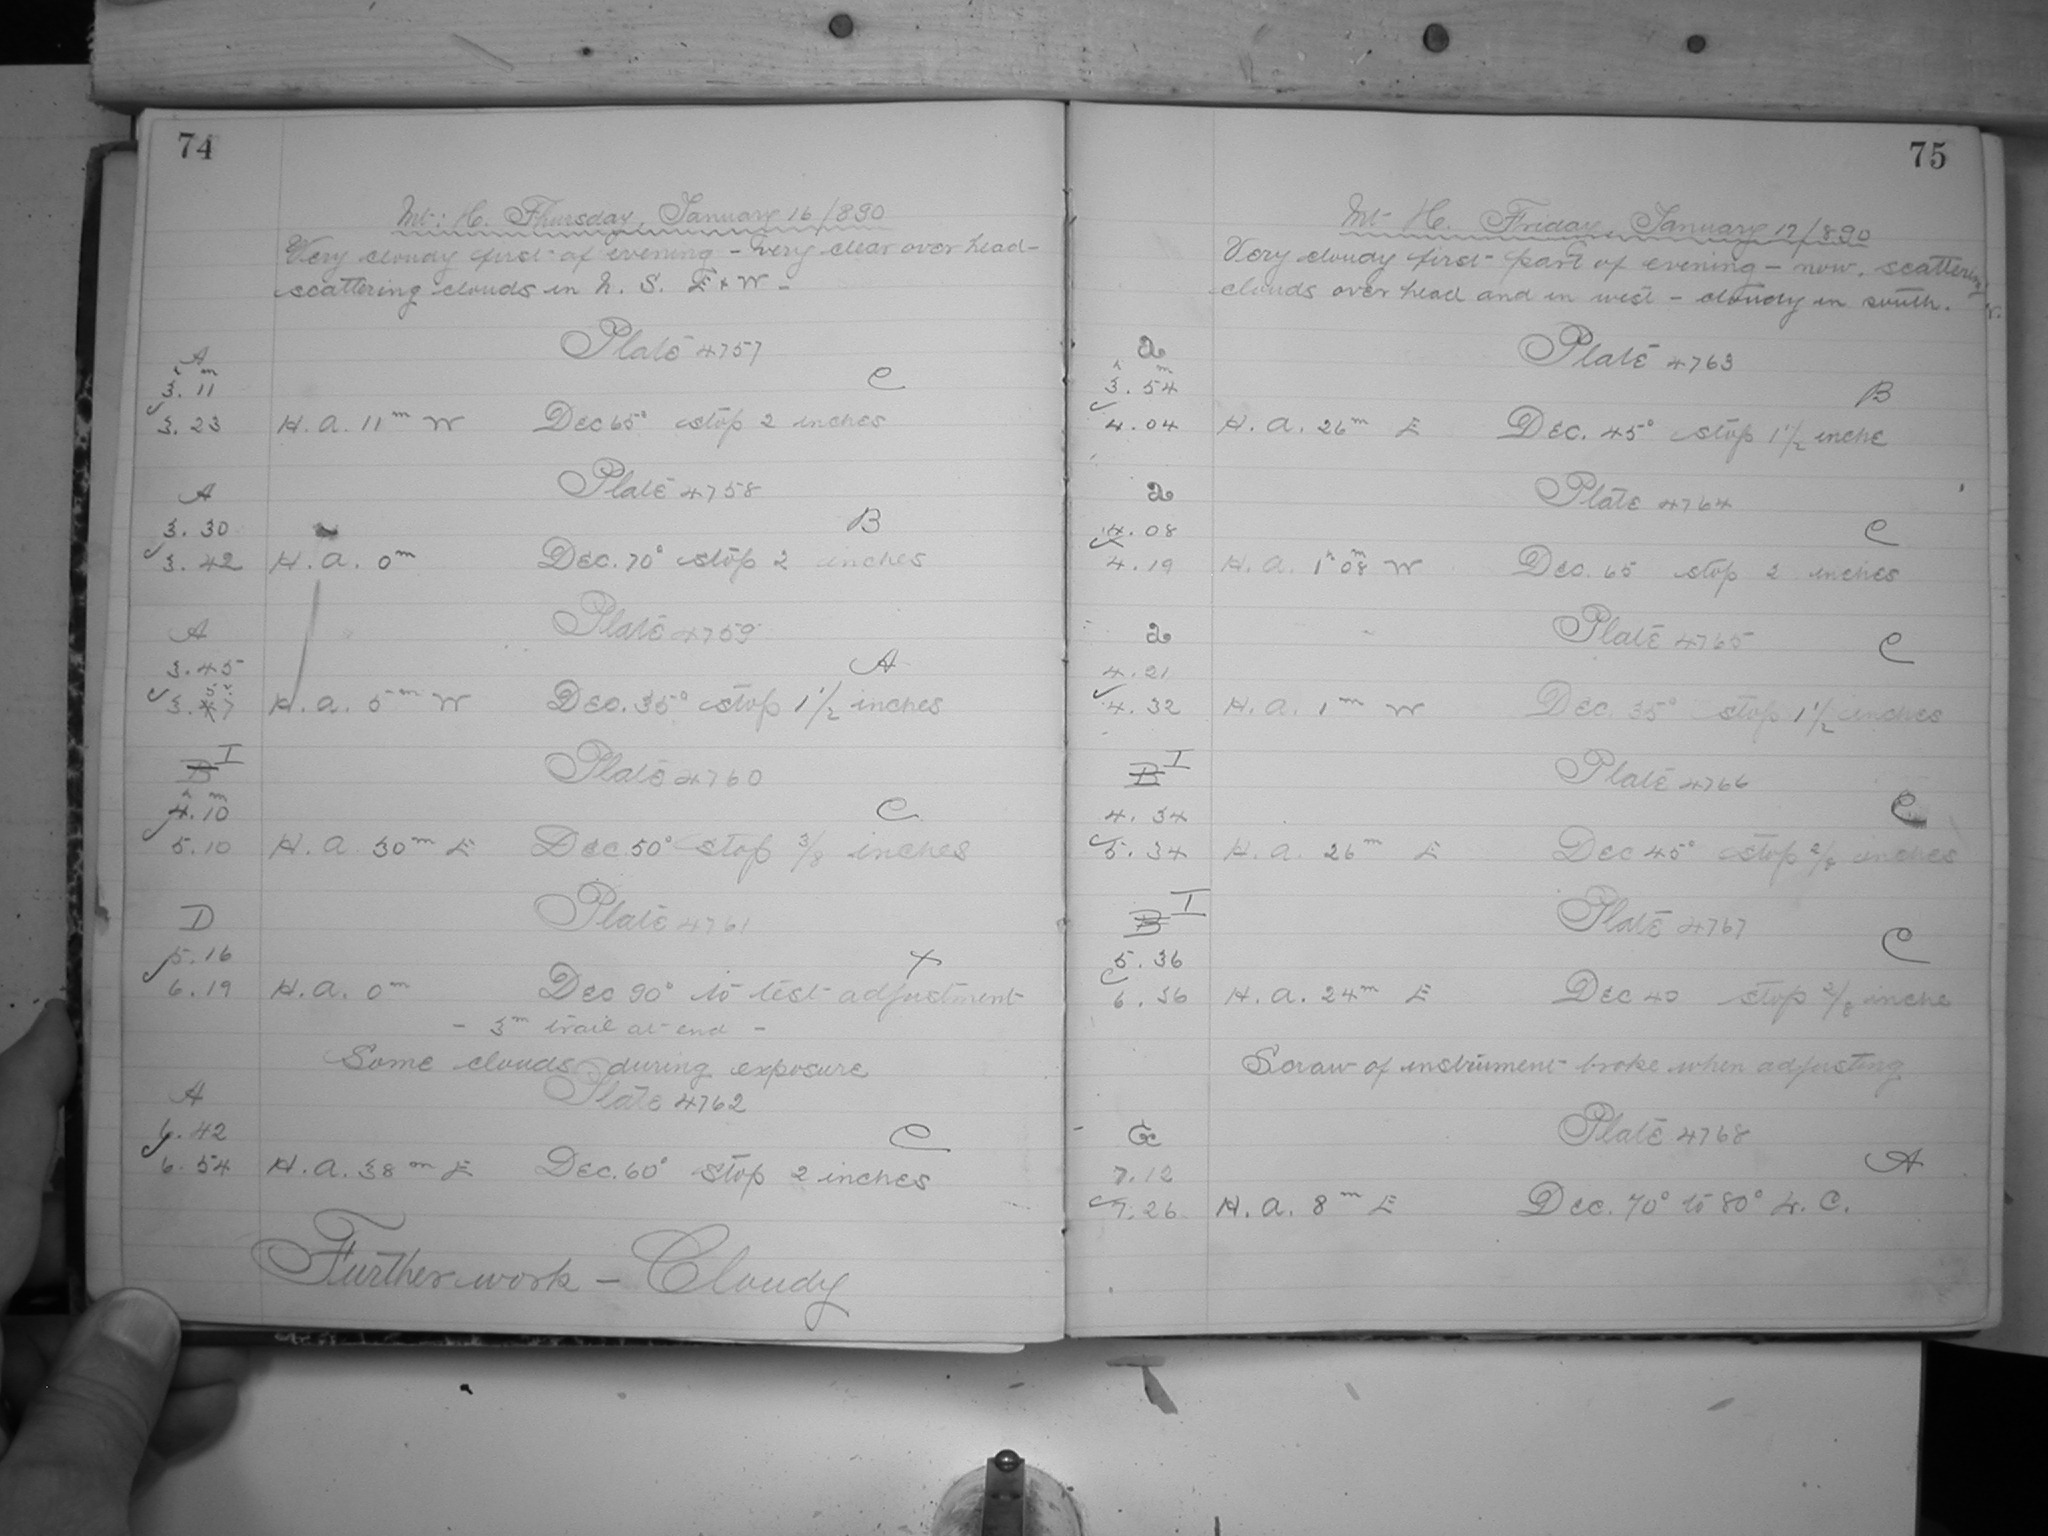 74
Mt: H. Thursday, January 16/890
Very cloudy first of evening – very clear over head –
scattering clouds in N. S. E + W –
Plate 4757
A
h m
3. 11
C
3. 23 H. A. 11m W Dec 65° stop 2 inches
Plate 4758
A
3. 30
B
3. 42 H. A. 0m Dec. 70° stop 2 inches
Plate 4759
A
3. 45
A
3. 57 H. A. 5m W Dec. 35° stop 1 1/2 inches
B I
Plate 4760
h m
4. 10
C
5. 10 H. A. 30m E Dec 50° stop 3/8 inches
Plate 4761
D
5. 16
X
6. 19 H. A. 0m Dec 90° to test adjustment
– 3m trail at end –
Some clouds during exposure
A
Plate 4762
6. 42
C
6. 54 H. A. 38m E Dec. 60° stop 2 inches
Further work – Cloudy
75
Mt H. Friday, January 17/890
Very cloudy first part of evening – now. scattering
clouds over head and in west – cloudy in south.
a
Plate 4763
h m
3. 54
B
4. 04 H. A. 26m E Dec. 45° stop 1 1/2 inche
a
Plate 4764
4. 08
C
4. 19 H. A. 1h 08m W Dec. 65 stop 2 inches
a
Plate 4765
C
4. 21
4. 32 H. A. 1m W Dec. 35° stop 1 1/2 inches
B I
Plate 4766
C
4. 34
5. 34 H. A. 26m E Dec 45° stop 2/8 inches
B I
Plate 4767
C
5. 36
6. 36 H. A. 24m E Dec 40 stop 2/8 inche
Scraw of instrument broke when adjusting
G
Plate 4768
A
7. 12
7. 26 H. A. 8m E Dec. 70° to 80° L. C.